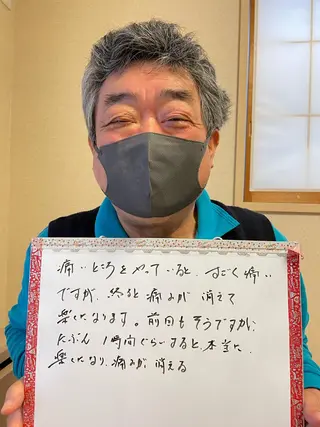 痛いところをやっていると、すごく痛い
ですが、終ると痛みが消えて
楽になります。前回もそうですが、
たぶん1時間ぐらいすると、本当に
楽になり、痛みが消える